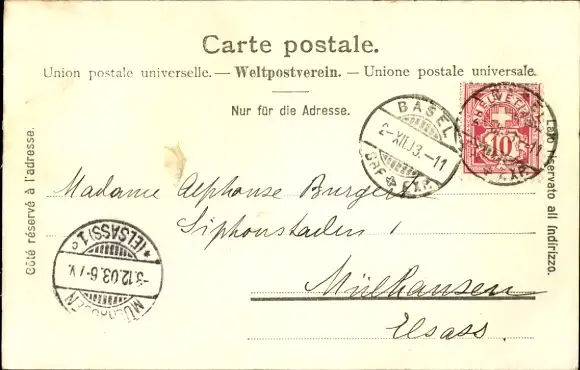 Carte postale.
Union postale universelle. — Weltpostverein. — Unione postale universale.
Nur für die Adresse.
Côté réservé à l'adresse.
Lato riservato all indirizzo.
HELVETIA
10
BASEL
2-XII.03.-11
BRF EXP.
BASEL
EXP.
Madame Alphonse Burgert
Siphonstaden 1
Mülhausen
Elsass.
MÜLHAUSEN
3.12.03.6-7V.
*(ELSASS)1c